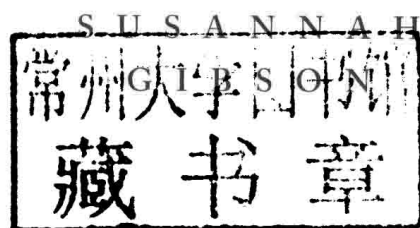 SUSANNAH
GIBSON
常州大学
藏书章